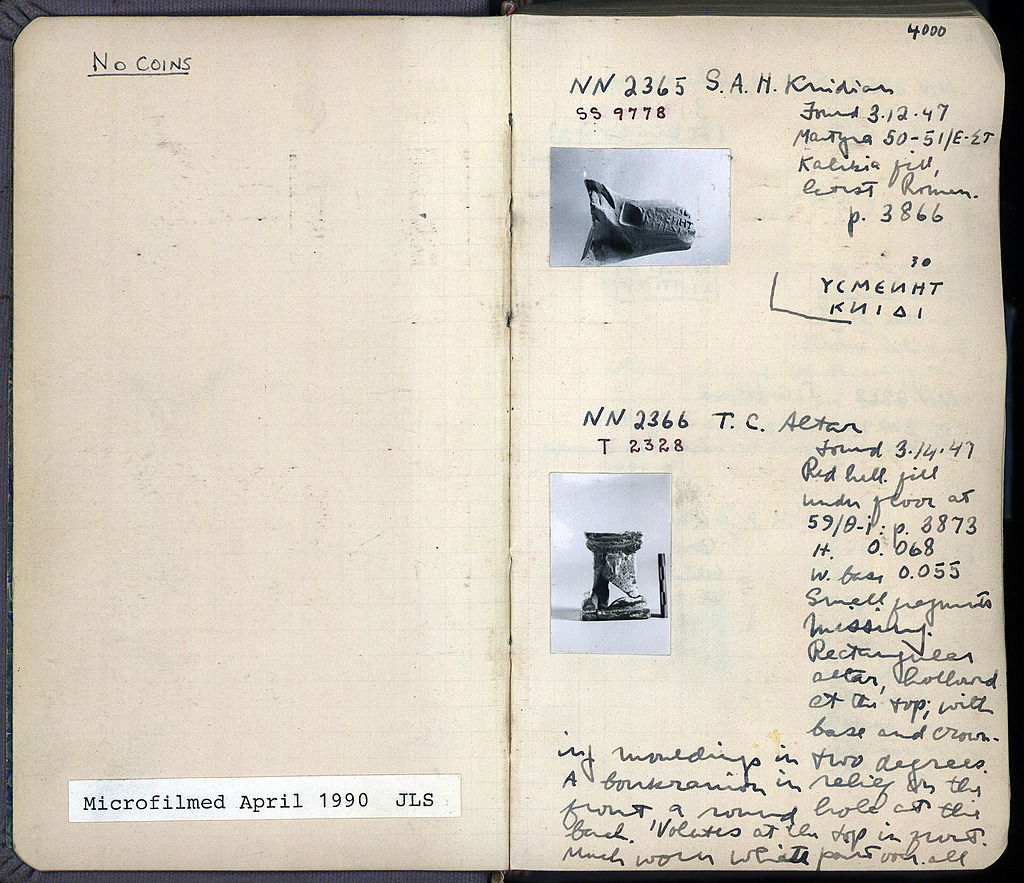 No COINS
Microfilmed April 1990 JLS
4000
NN 2365 S.A.H. Knidian
SS 9778
Found 3.12.47
Martyra 50-51/Ε-ΣΤ
fill,
latest Roman.
p. 3866
30
ΥСΜΕИΗΤ
ΚИΙΔΙ
NN 2366 T.C. Altar
T 2328
Found 3.14.47
Red hell. fill
under floor at
59/Θ-Ι: p. 3873
H. 0.068
W. base 0.055
Small fragments
missing.
Rectangular
altar, hollowed
at the top; with
base and crown-
ing mouldings in two degrees.
A boukranion in relief on the
front, a round hole at the
back. Volutes at the top in front.
Much worn white paint over all